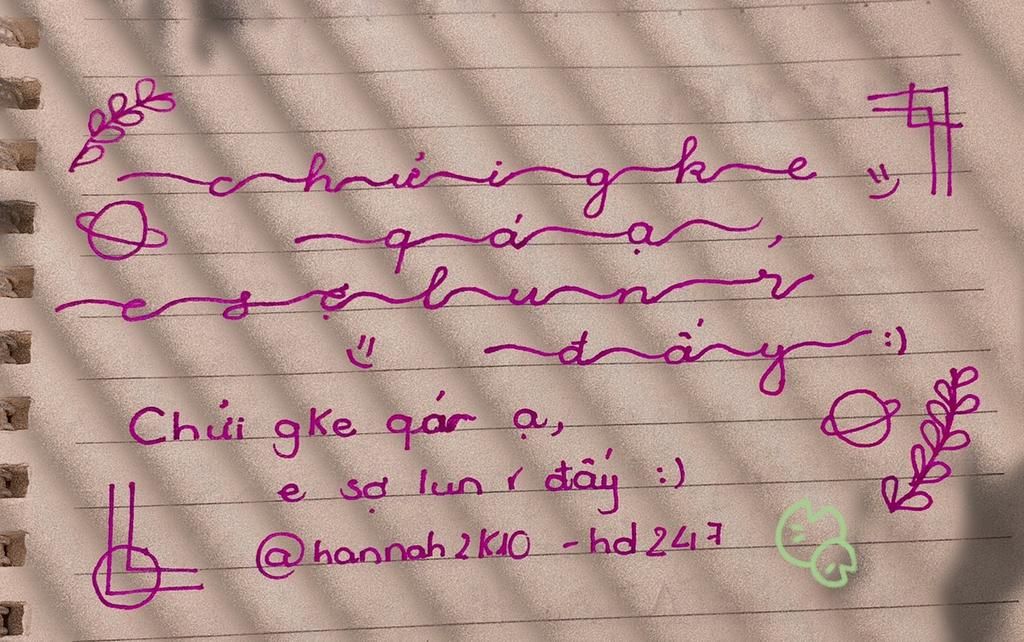 chửi gke
quá ạ,
e sợ lun r
đấy :)
Chửi gke qár ạ,
e sợ lun r đấy :)
@hannah2K10 - hd247